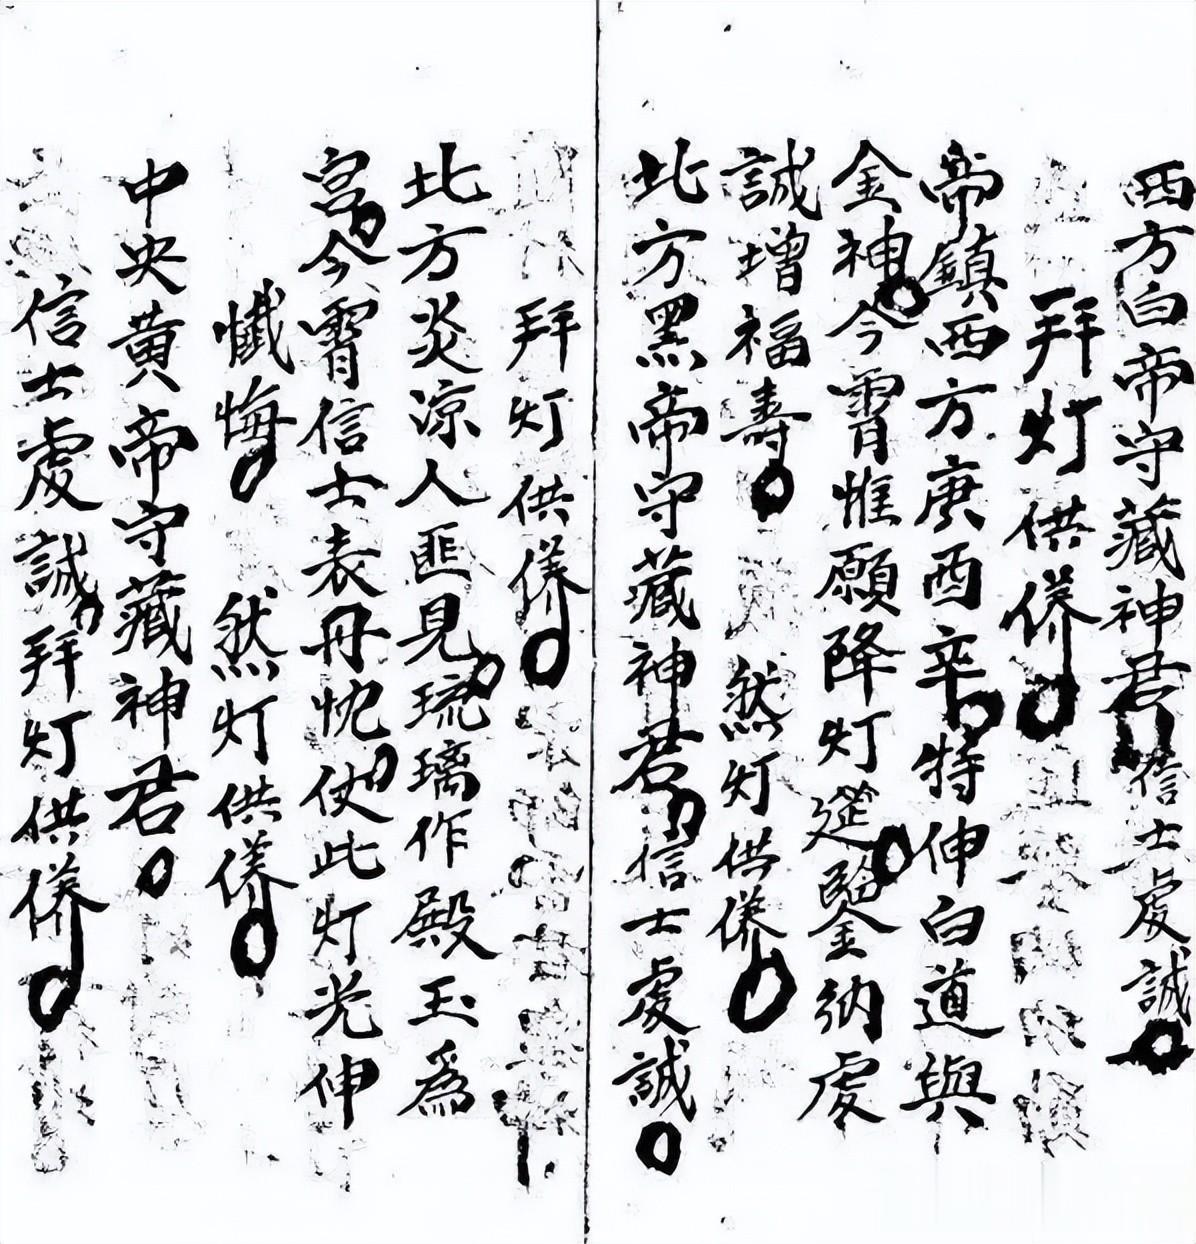 西方白帝守藏神君信士虔誠
拜灯供養
帝鎮西方庚酉辛特伸白道與
金神今霄惟願降灯筵鑒納虔
誠增福壽 然灯供養
北方黑帝守藏神君信士虔誠
拜灯供養
北方炎凉人匪見琉璃作殿玉為
宮今霄信士表丹忱仗此灯光伸
懺悔 然灯供養
中央黄帝守藏神君
信士虔誠拜灯供養